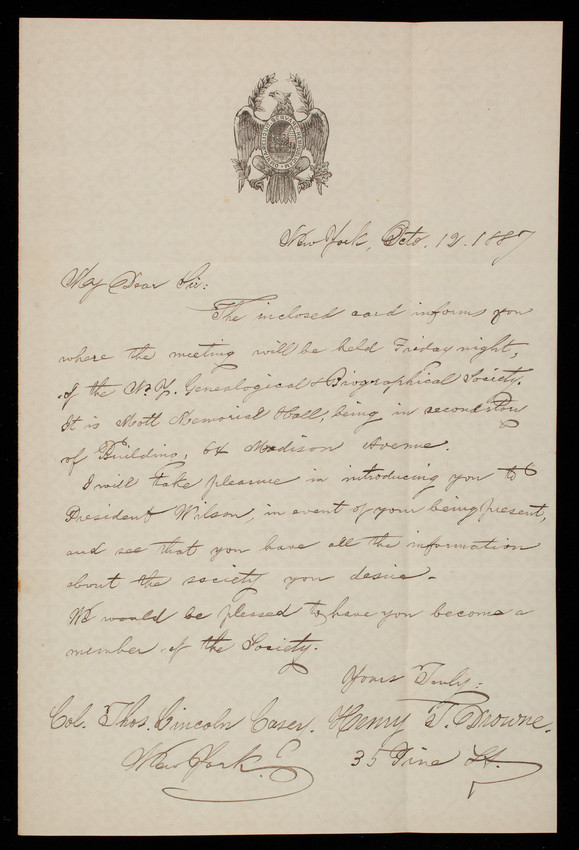 New York, Octo. 12. 1887
My Dear Sir:
The inclosed card informs you
where the meeting will be held Friday night,
of the N. Y. Genealogical & Biographical Society.
It is Mott Memorial Hall, being in second story
of Building, 64 Madison Avenue.
I will take pleasure in introducing you to
President Wilson, in event of your being present,
and see that you have all the information
about the society you desire.
We would be plessed to have you become a
member of the Society.
Yours Truly:
Henry T. Drowne.
35 Pine St.
Col. Thos. Lincoln Casey.
New York.